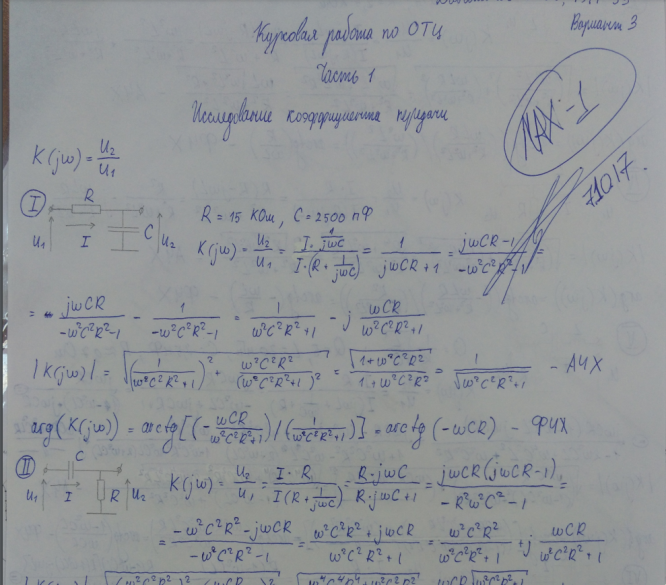 Вариант 3
Курсовая работа по ОТЦ
Часть 1
Исследование коэффициента передачи
MAX-1
K(jω) = U2/U1
I R C U1 I U2
R = 15 кОм, C = 2500 пФ
K(jω) = U2/U1 = (I · 1/(jωC))/(I·(R + 1/(jωC))) = 1/(jωCR+1) = (jωCR-1)/(-ω²C²R²-1) =
= jωCR/(-ω²C²R²-1) - 1/(-ω²C²R²-1) = 1/(ω²C²R²+1) - j ωCR/(ω²C²R²+1)
|K(jω)| = √((1/(ω²C²R²+1))² + ω²C²R²/(ω²C²R²+1)²) = √(1+ω²C²R²)/(1+ω²C²R²) = 1/√(ω²C²R²+1) - АЧХ
arg(K(jω)) = arctg[(-ωCR/(ω²C²R²+1))/(1/(ω²C²R²+1))] = arctg(-ωCR) - ФЧХ
II C U1 I R U2
K(jω) = U2/U1 = (I·R)/(I(R+1/(jωC))) = (R·jωC)/(R·jωC+1) = (jωCR(jωCR-1))/(-R²ω²C²-1) =
= (-ω²C²R²-jωCR)/(-ω²C²R²-1) = (ω²C²R²+jωCR)/(ω²C²R²+1) = ω²C²R²/(ω²C²R²+1) + j ωCR/(ω²C²R²+1)